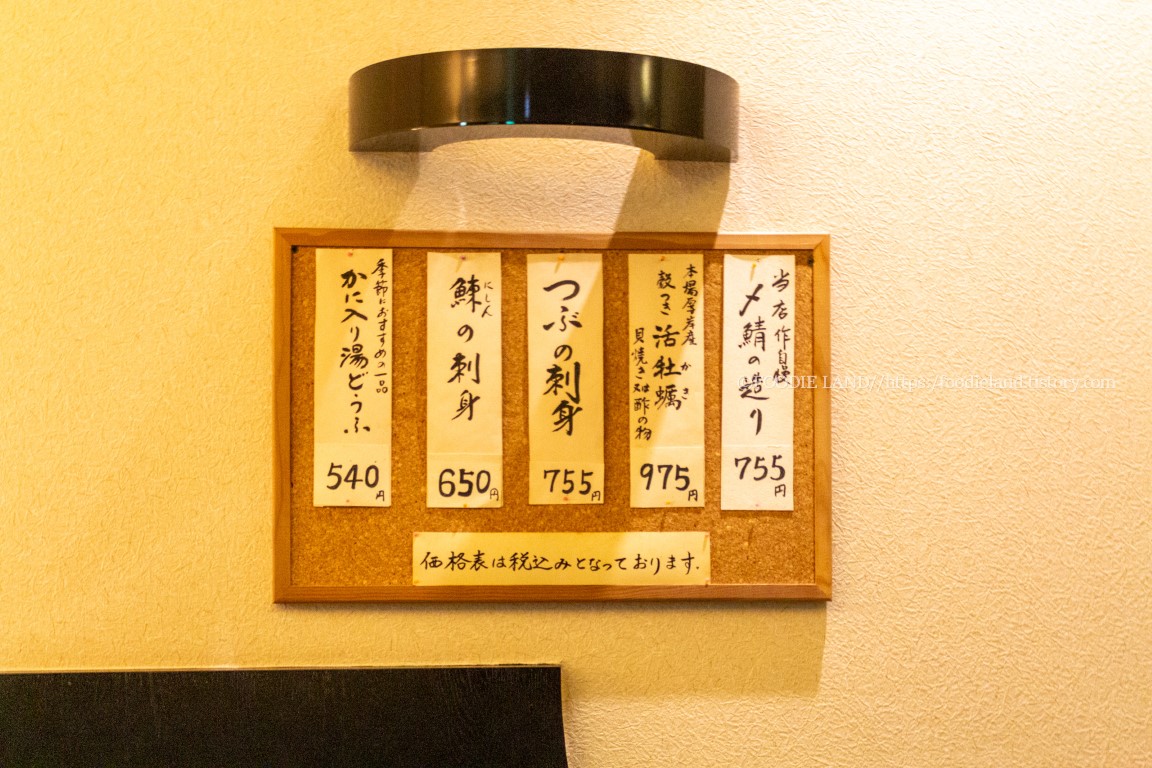 当店作自慢
〆鯖の造り
755円
本場厚岸産
殻つき 活牡蠣
かき
貝焼き又は酢の物
975円
つぶの刺身
755円
鰊の刺身
にしん
650円
季節におすすめの一品
かに入り湯どうふ
540円
価格表は税込みとなっております.